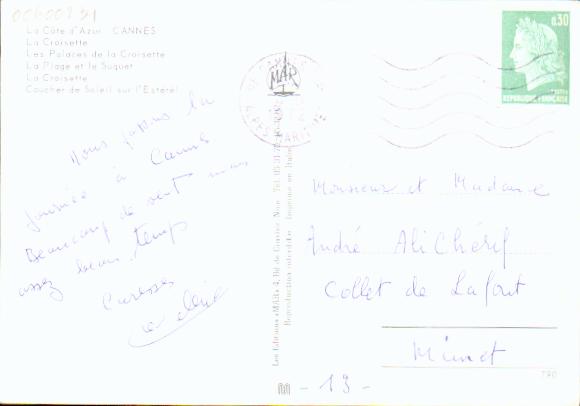 00600231
La Côte d'Azur CANNES
La Croisette
Les Palaces de la Croisette
La Plage et le Suquet
La Croisette
Coucher de Soleil sur l'Estérel
Nous passons la
journée à Cannes
Beaucoup de vent mais
assez beau temps
Caresses
MAR
0,30
REPUBLIQUE FRANÇAISE
Les Editions «MAR» Nice
Reproduction interdite Imprimé en Italie
Monsieur et Madame
André AliChérif
Collet de Lafout
Mimet
790
- 13 -